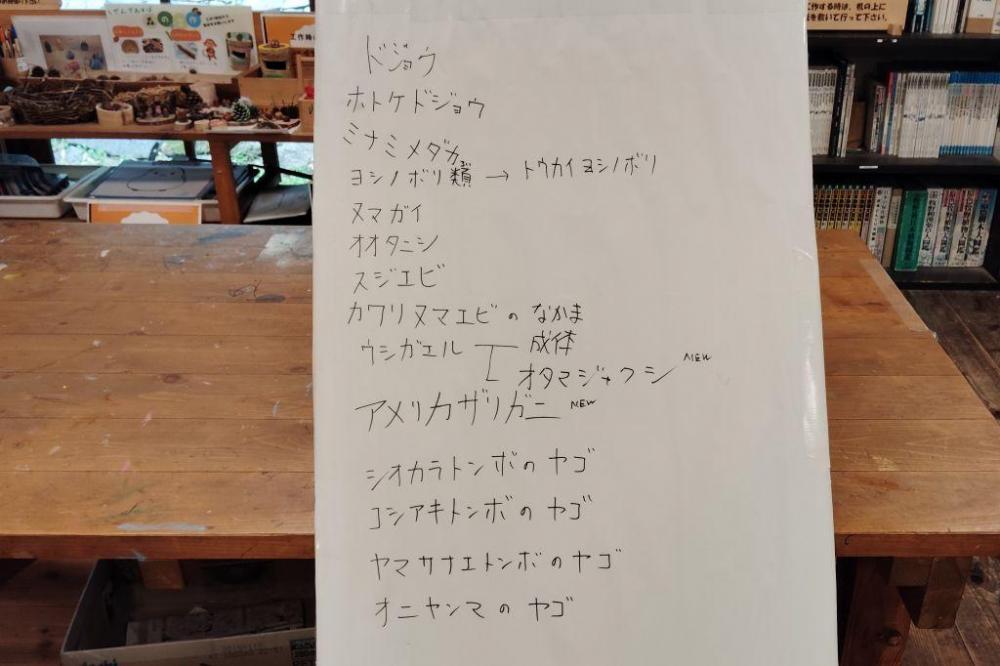 ドジョウ
ホトケドジョウ
ミナミメダカ
ヨシノボリ類 → トウカイヨシノボリ
ヌマガイ
オオタニシ
スジエビ
カワリヌマエビのなかま
ウシガエル 成体
オタマジャクシ NEW
アメリカザリガニ NEW
シオカラトンボのヤゴ
コシアキトンボのヤゴ
ヤマサナエトンボのヤゴ
オニヤンマのヤゴ